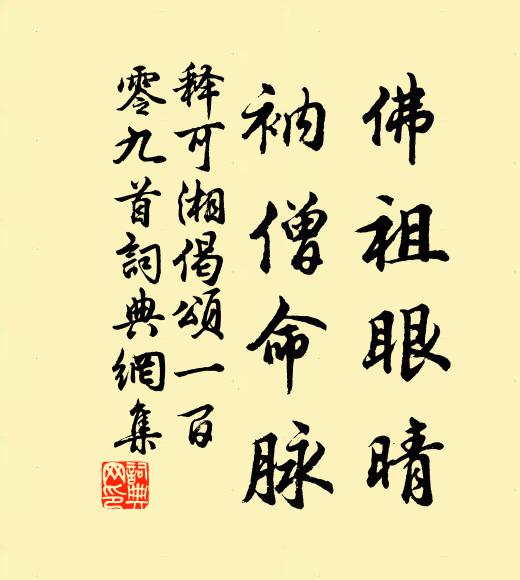 佛祖眼晴
衲僧命脉
释可湘偈頌一百
零九首詞典網集
詞典網印